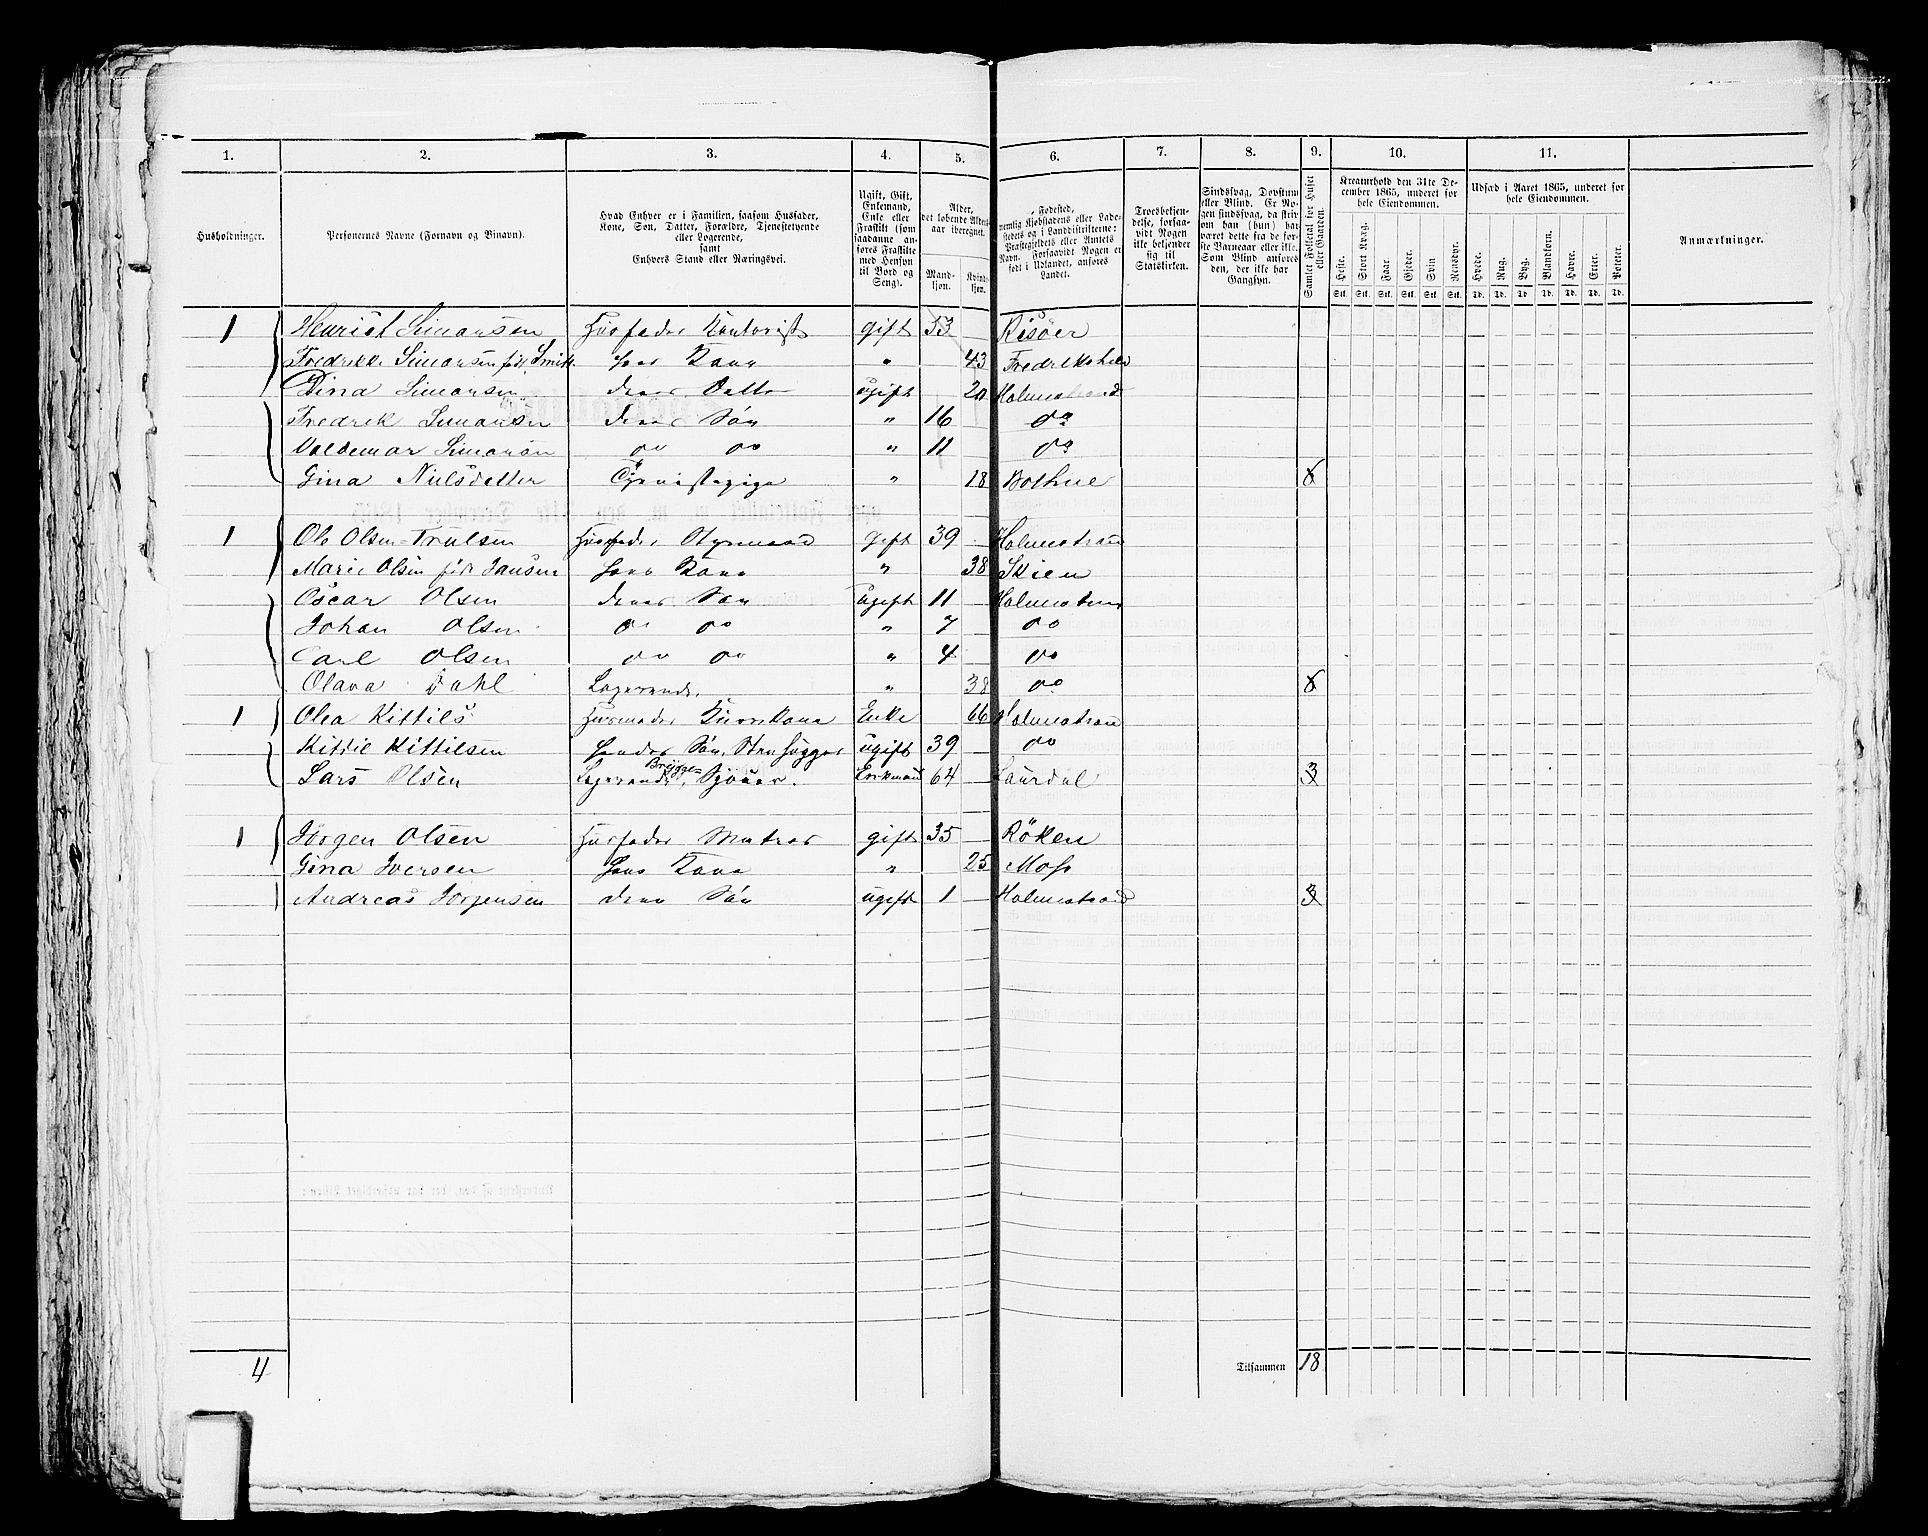 1. 2. 3. 4. 5. 6. 7. 8. 9. 10. 11.
Husholdninger.
Personernes Navne (Fornavn og Binavn).
Hvad Enhver er i Familien, saasom Husfader,
Kone, Søn, Datter, Forældre, Tjenestetyende
eller Logerende,
samt
Enhvers Stand eller Næringsvei.
Ugift, Gift,
Enkemand,
Enke eller
Fraskilt (som
saadanne an-
føres Fraskilte
med Hensyn
til Bord og
Seng).
Alder,
det løbende Alders-
aar iberegnet.
Mand-
kjøn.
Kvind-
kjøn.
Fødested,
nemlig Kjøbstadens eller Lade-
stedets og i Landdistrikterne:
Præstegjeldets eller Amtets
Navn. Forsaavidt Nogen er
født i Udlandet, anføres
Landet.
Troesbekjen-
delse, forsaa-
vidt Nogen
ikke bekjender
sig til
Statskirken.
Sindssvag, Døvstum
eller Blind. Er No-
gen sindssvag, da skriv
om han (hun) har
været dette fra de for-
ste Barneaar eller ikke.
Som Blind anføres
den, der ikke har
Gangsyn.
Samlet Folketal for Huset
eller Gaarden.
Kreaturhold den 31te De-
cember 1865, underet for
hele Eiendommen.
Heste. Stort Kvæg. Faar. Gjeder. Svin Rensdyr.
Stk. Stk. Stk. Stk. Stk. Stk.
Udsæd i Aaret 1865, underet for
hele Eiendommen.
Hvede. Rug. Byg. Blandkorn. Havre. Erter. Poteter.
Td. Td. Td. Td. Td. Td. Td.
Anmærkninger.
1 Henrist Simonsen Husfader Kontorist gift 53 Risöer
Fredrekke Simonsen föd Smitt. hans Kone " 43 Fredrikshald
Dina Simonsen deres Datter ugift 20 Holmestrand
Fredrek Simonsen deres Sön " 16 do
Valdemar Simonsen do do " 11 do
Gina Nilsdatter Tjenestepige " 18 Bothne 6
1 Ole Olsen Trulsen Husfader Styrmand gift 39 Holmestrand
Marie Olsen föde Jansen hans Kone " 38 Skien
Oscar Olsen deres Sön ugift 11 Holmestrand
Johan Olsen do do " 7 do
Carl Olsen do do " 4 do
Olava Dahl Logerende, " 38 do 6
1 Olea Kittils Husmoder Enke 66 Holmestrand
Kittil Kittilsen hendes Sön, Stenhugger ugift 39 do
Lars Olsen Logerende, Brygge Sjouer. Enkmand 64 Laurdal 3
1 Jörgen Olsen Husfader Matros gift 35 Röken
Gina Iversen hans Kone " 25 Moss
Andreas Jörgensen deres Sön ugift 1 Holmestrand 3
4 Tilsammen 18